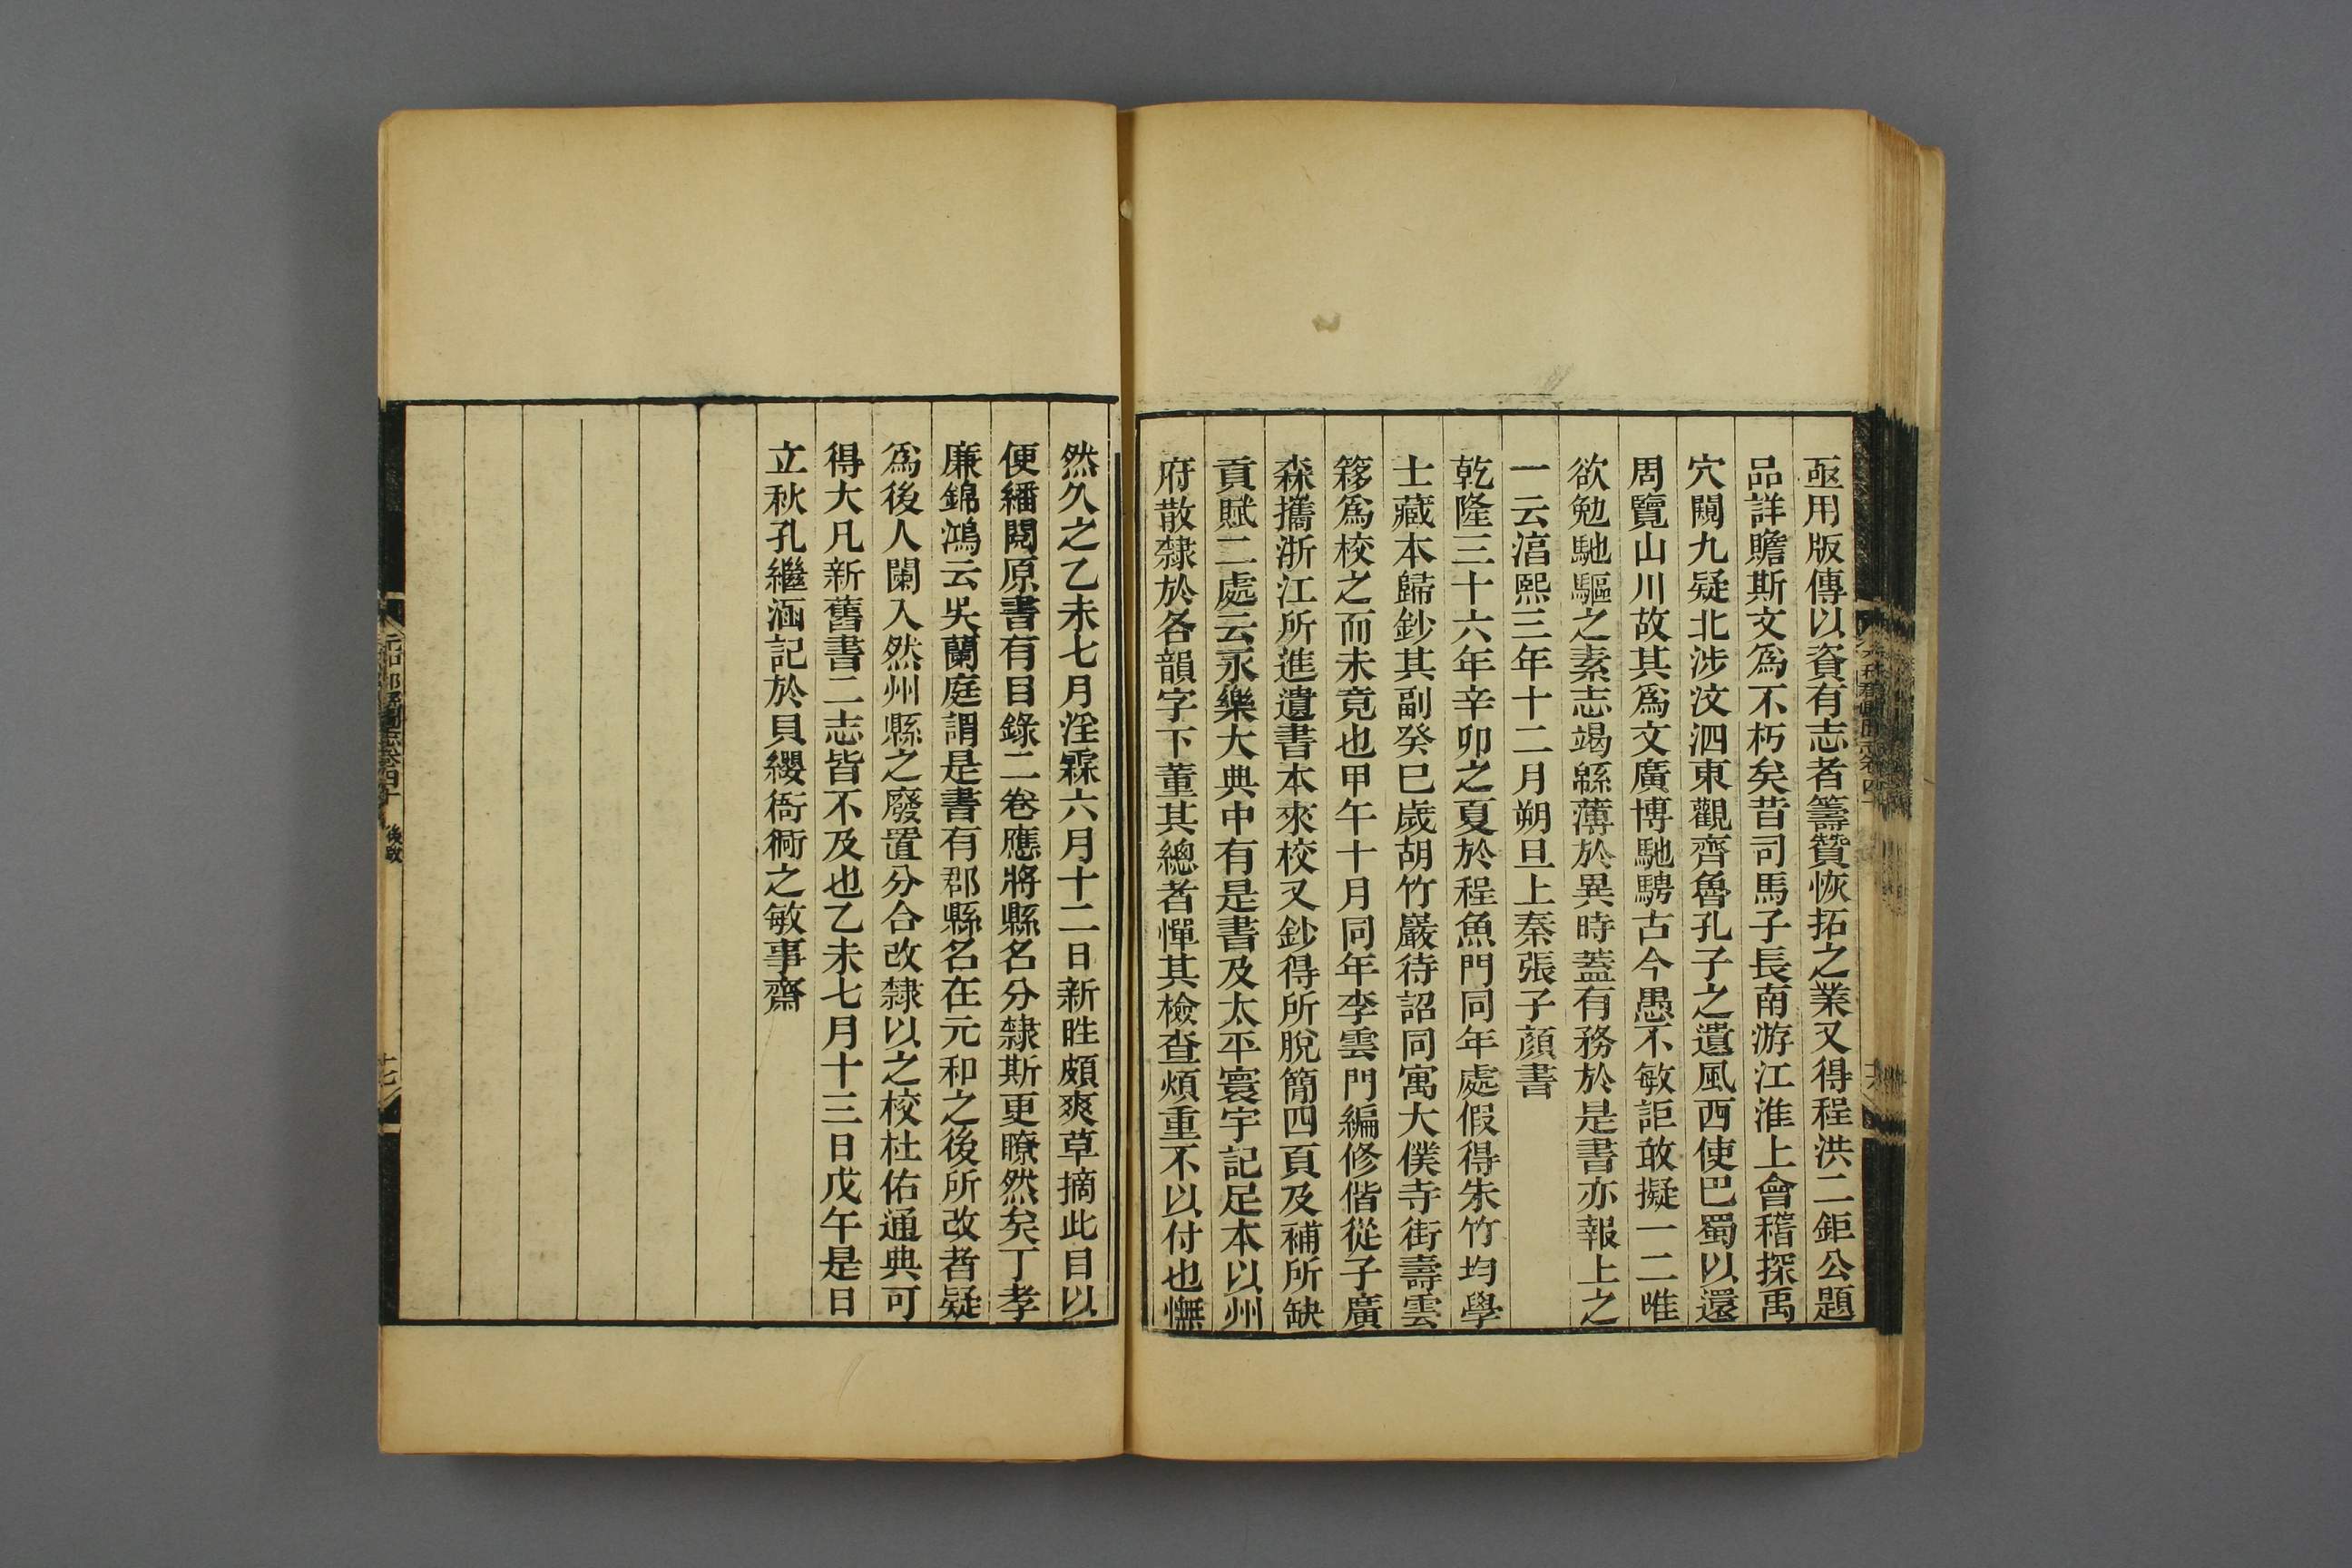 亟用版傳以資有志者籌贊恢拓之業又得程洪二鉅公題
品詳贍斯文爲不朽矣昔司馬子長南游江淮上會稽探禹
穴闚九疑北涉汶泗東觀齊魯孔子之遺風西使巴蜀以還
周覽山川故其爲文廣博馳騁古今愚不敏詎敢擬一二唯
欲勉馳驅之素志竭緜薄於異時蓋有務於是書亦報上之
一云湻熙三年十二月朔旦上秦張子顏書
乾隆三十六年辛卯之夏於程魚門同年處假得朱竹均學
士藏本歸鈔其副癸巳歲胡竹巖待詔同寓大僕寺街壽雲
簃爲校之而未竟也甲午十月同年李雲門編修偕從子廣
森攜浙江所進遺書本來校又鈔得所脫簡四頁及補所缺
貢賦二處云永樂大典中有是書及太平寰宇記足本以州
府散隸於各韻字下董其總者憚其檢查煩重不以付也憮
然久之乙未七月淫霖六月十二日新甠頗爽草摘此目以
便繙閱原書有目錄二卷應將縣名分隸斯更瞭然矣丁孝
廉錦鴻云吳蘭庭謂是書有郡縣名在元和之後所改者疑
爲後人闌入然州縣之廢置分合改隸以之校杜佑通典可
得大凡新舊書二志皆不及也乙未七月十三日戊午是日
立秋孔繼涵記於貝纓衚衕之敏事齋
元和郡縣圖志卷四十 後敘
十七